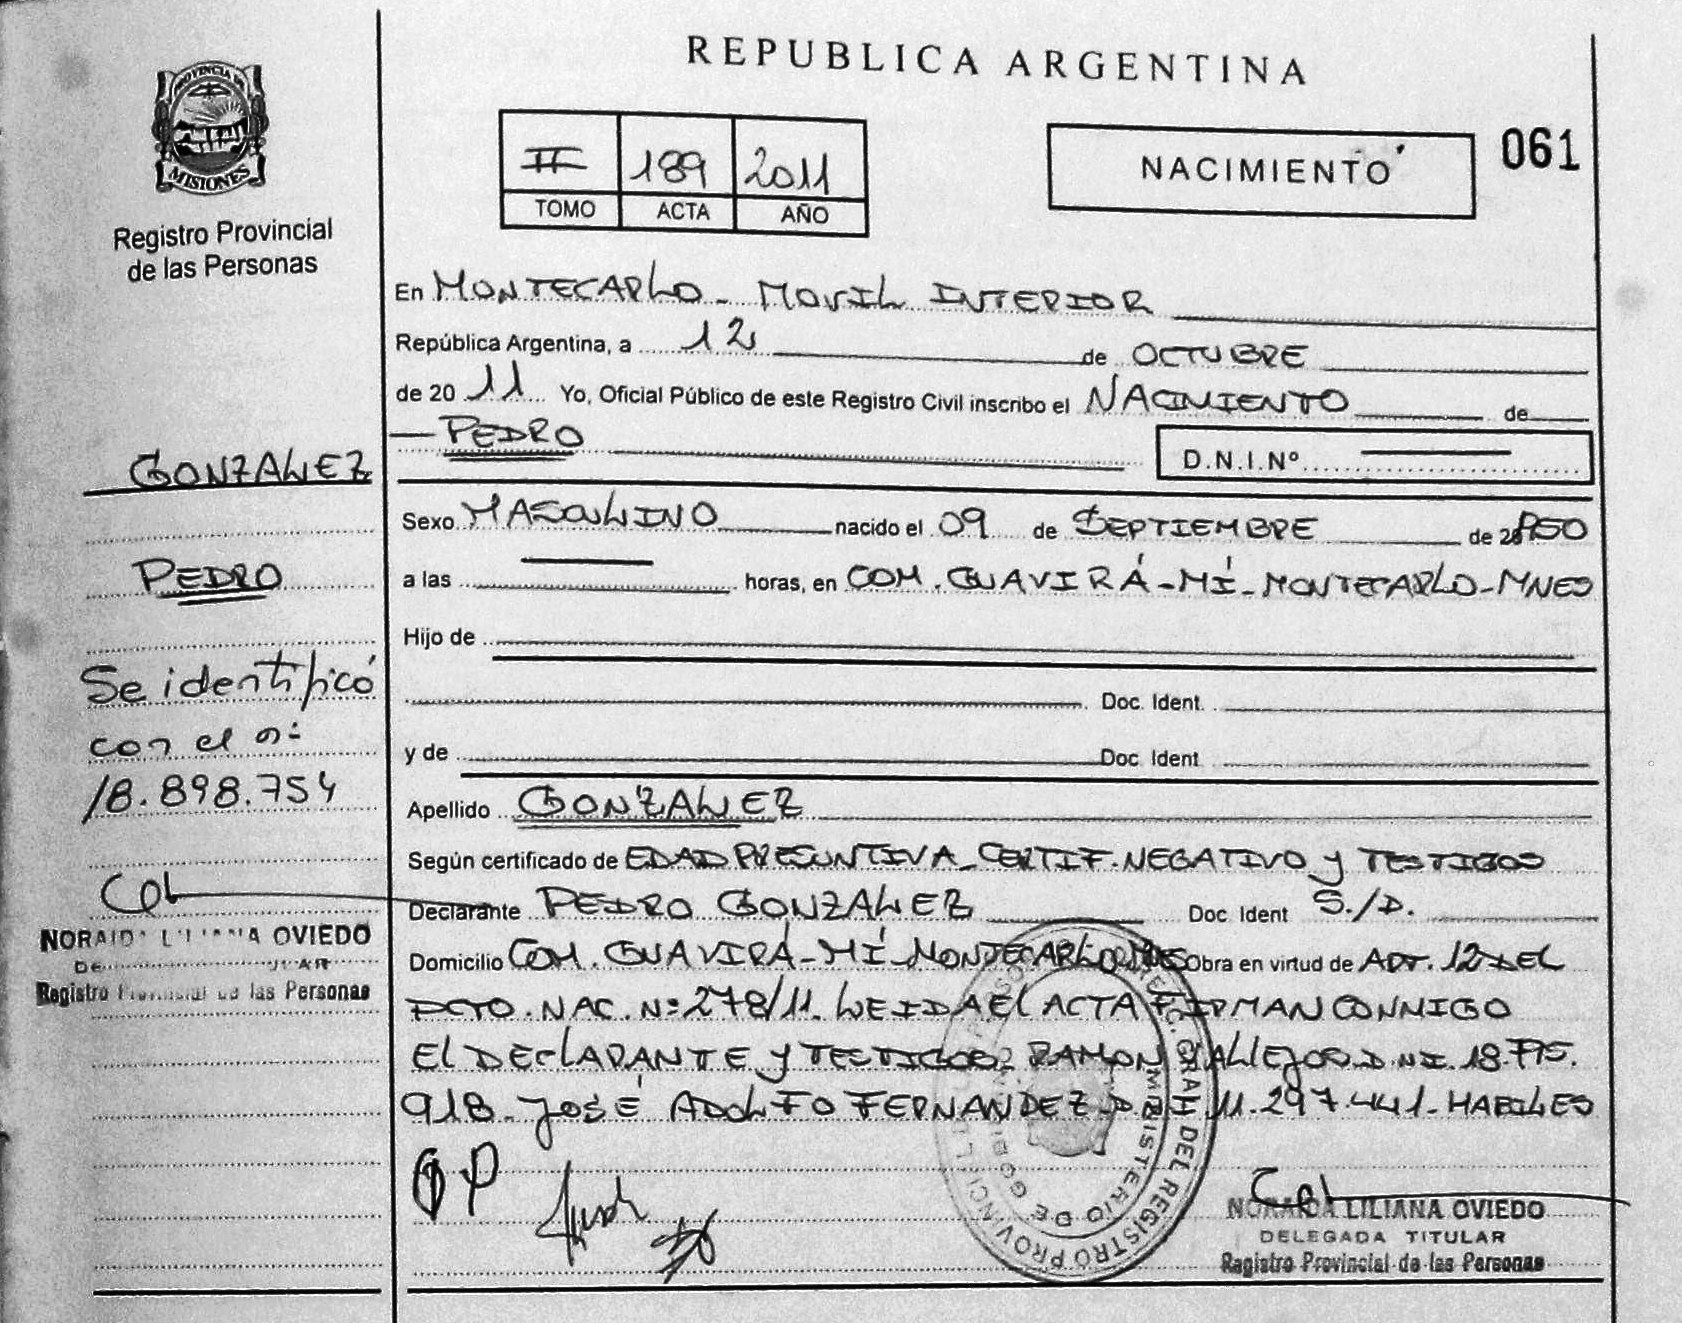 PROVINCIA DE
MISIONES
Registro Provincial
de las Personas
GONZALEZ
PEDRO
Se identificó
con el nº
18.898.754
OVIEDO
Registro Provincial de las Personas
REPUBLICA ARGENTINA
II 189 2011
TOMO ACTA AÑO
NACIMIENTO
061
En MONTECARLO - MOVIL INTERIOR
República Argentina, a 12 de OCTUBRE
de 20 11 Yo, Oficial Público de este Registro Civil inscribo el NACIMIENTO de
PEDRO D.N.I.Nº
Sexo MASCULINO nacido el 09 de SEPTIEMBRE de 1950
a las horas, en COM. GUAVIRÁ-MÍ-MONTECARLO-MNES
Hijo de
Doc. Ident.
y de Doc Ident
Apellido GONZALEZ
Según certificado de EDAD PRESUNTIVA-CERTIF. NEGATIVO y TESTIGOS
Declarante PEDRO GONZALEZ Doc Ident S./D.
Domicilio COM. GUAVIRÁ-MÍ-MONTECARLO Obra en virtud de ART. 12 DEL
DCTO. NAC. Nº 278/11. LEIDA El ACTA FIRMAN CONMIGO
El DEClARANTE y TESTIGOS RAMON VALLEJOS D.NI. 18.775.
918- JOSÉ ADOLFO FERNANDEZ 11.297.441-HABILES
REGISTRO PROVINCIAL
MINISTERIO DE GOBIERNO
NORAIDA LILIANA OVIEDO
DELEGADA TITULAR
Registro Provincial de las Personas